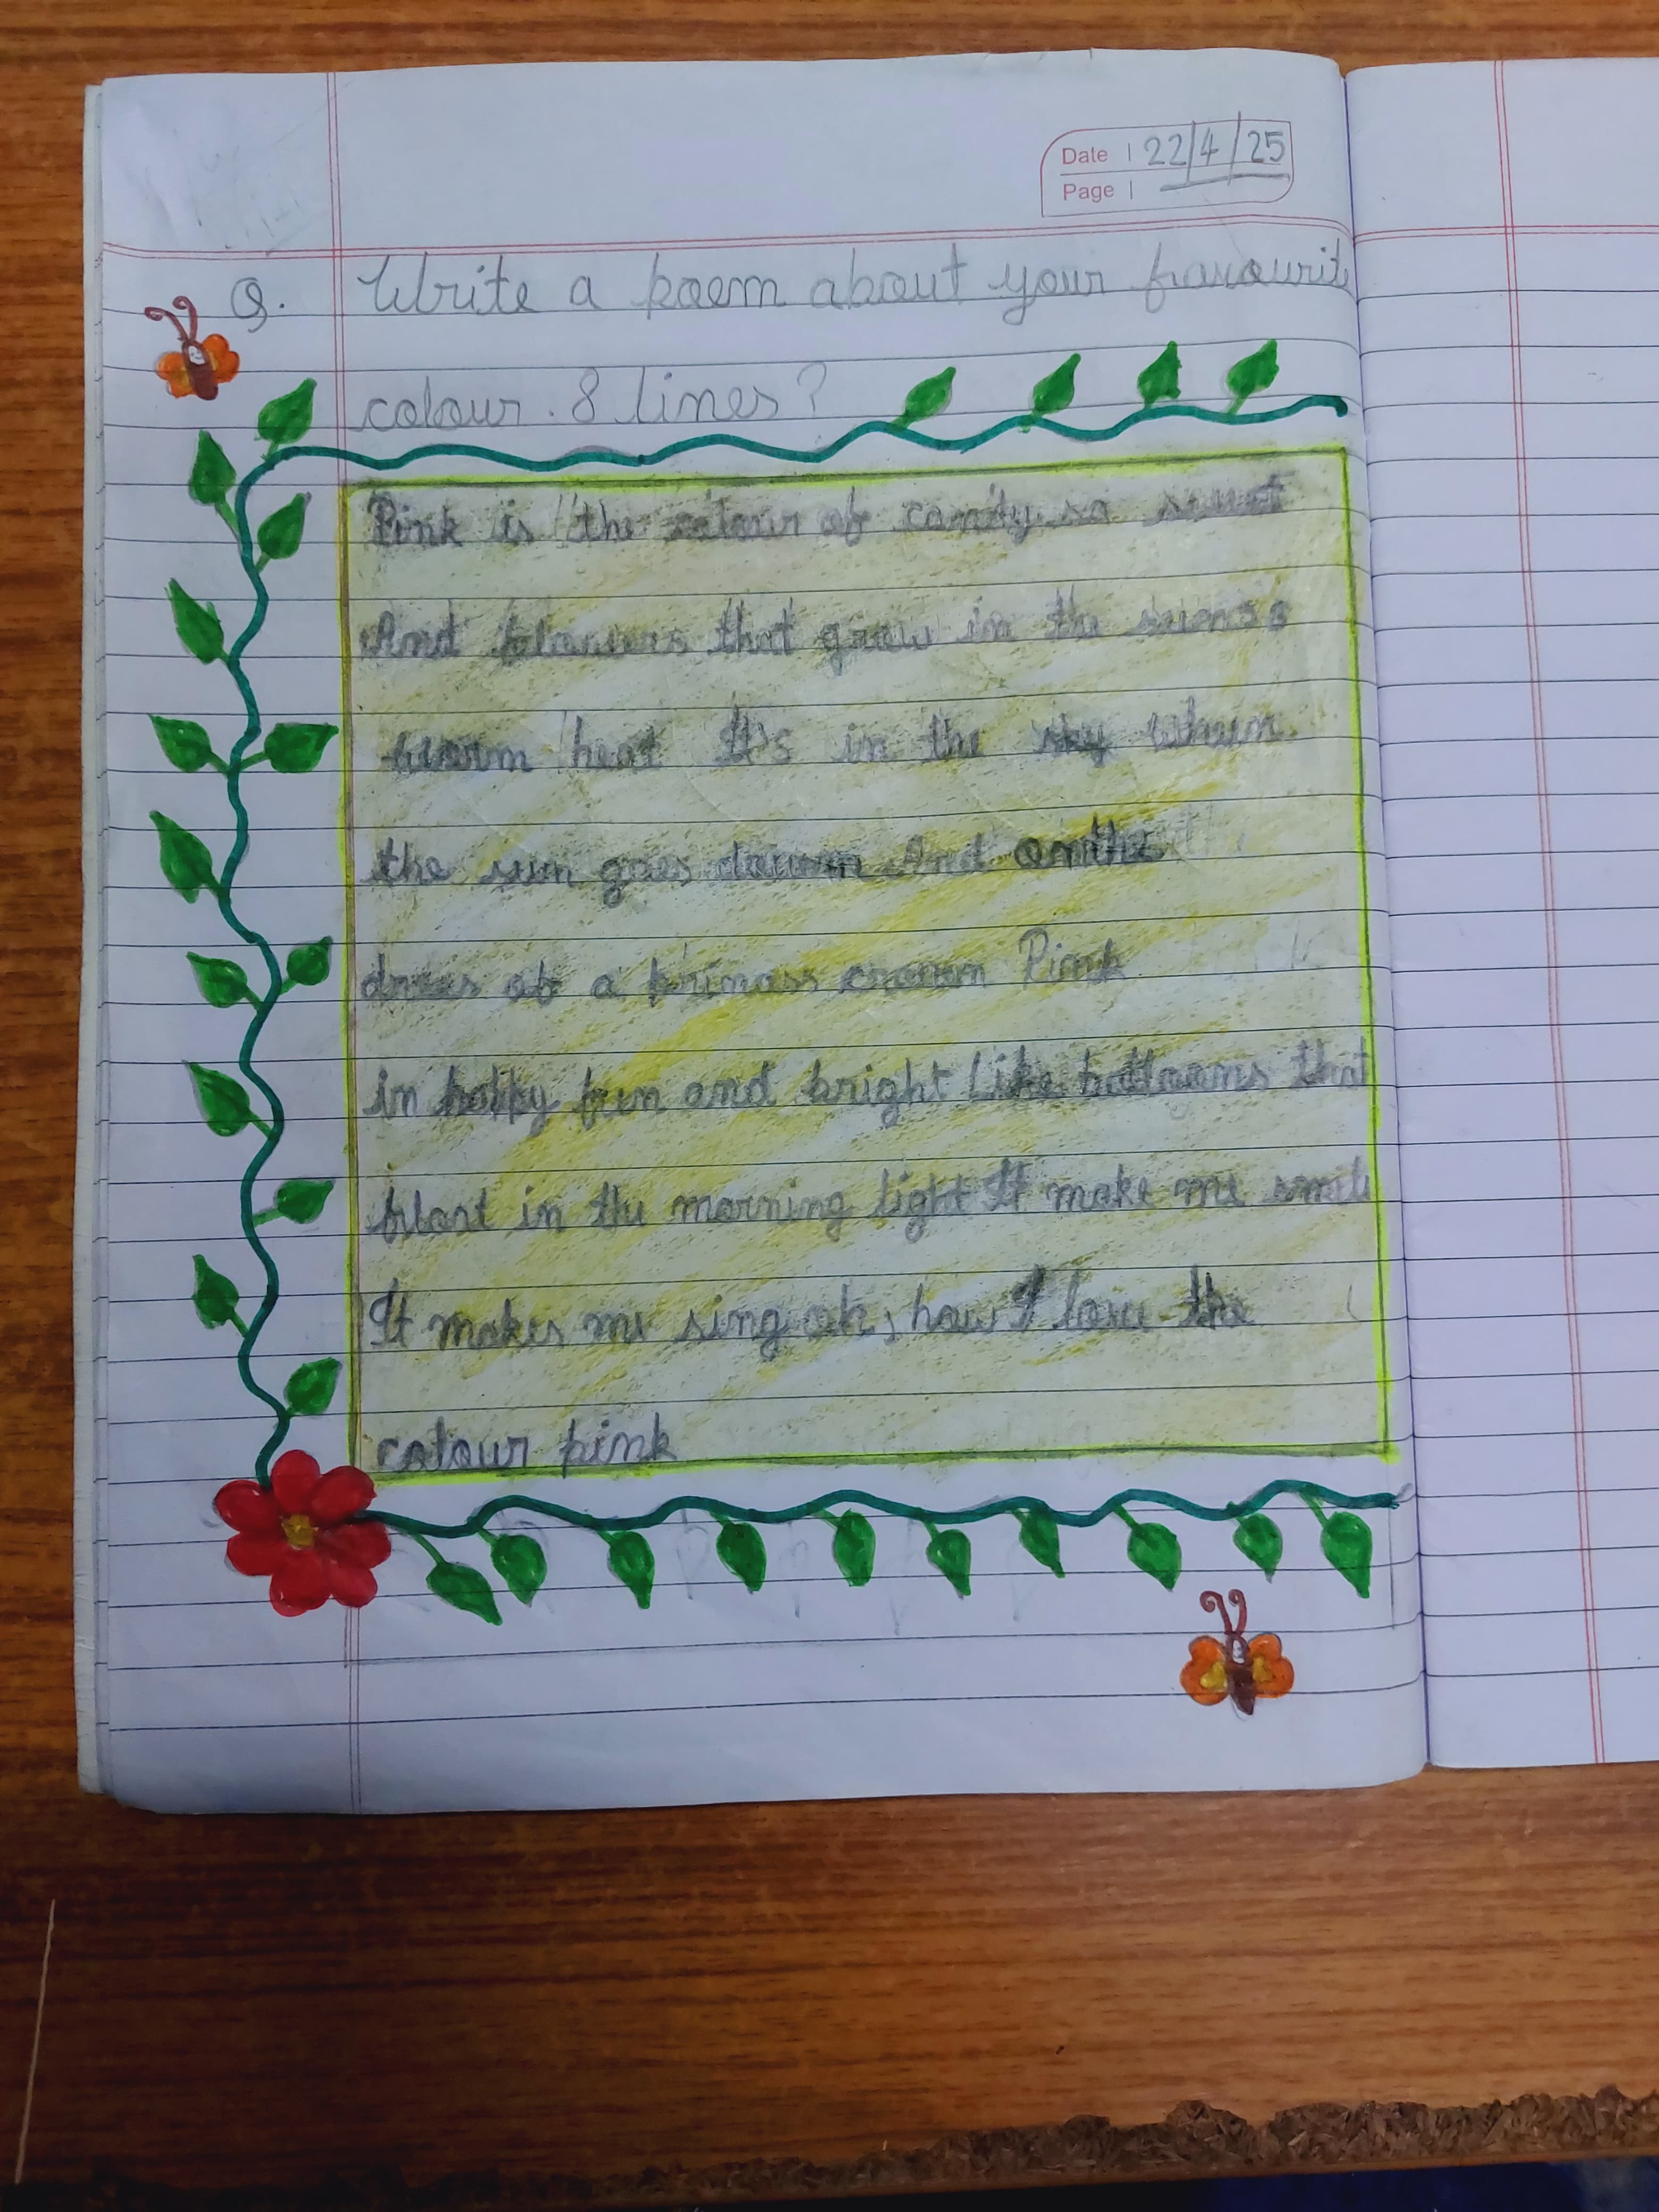 Date 22/4/25
Page
Q. Write a poem about your favourite
colour. 8 lines?
Pink is the colour of candy so sweet
And flowers that grow in the
warm heat It's in the sky when
the sun goes down And on the
dress of a princess crown Pink
in happy fun and bright Like balloons that
float in the morning light It make me smile
It makes me sing oh, how I love the
colour pink